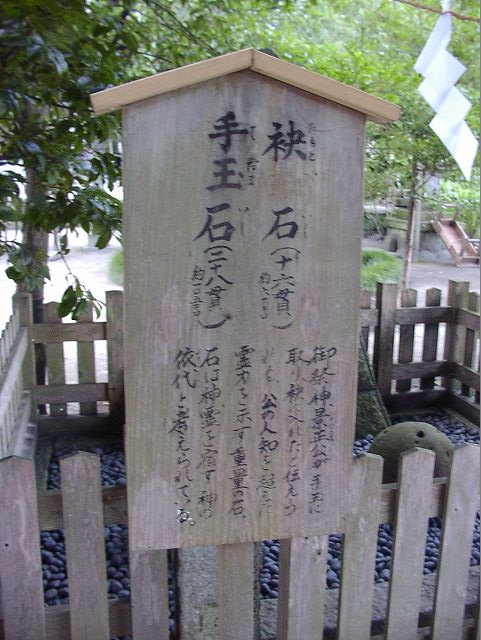 袂石(十六貫)
たもと
約六〇キロ
手玉石(二十八貫)
てだま
御祭神景正公が手玉に
取り袂に入れたと伝えら
れる。公の人知を超えた
霊力を示す重量の石。
石は神霊を宿す神の
依代と考えられている。